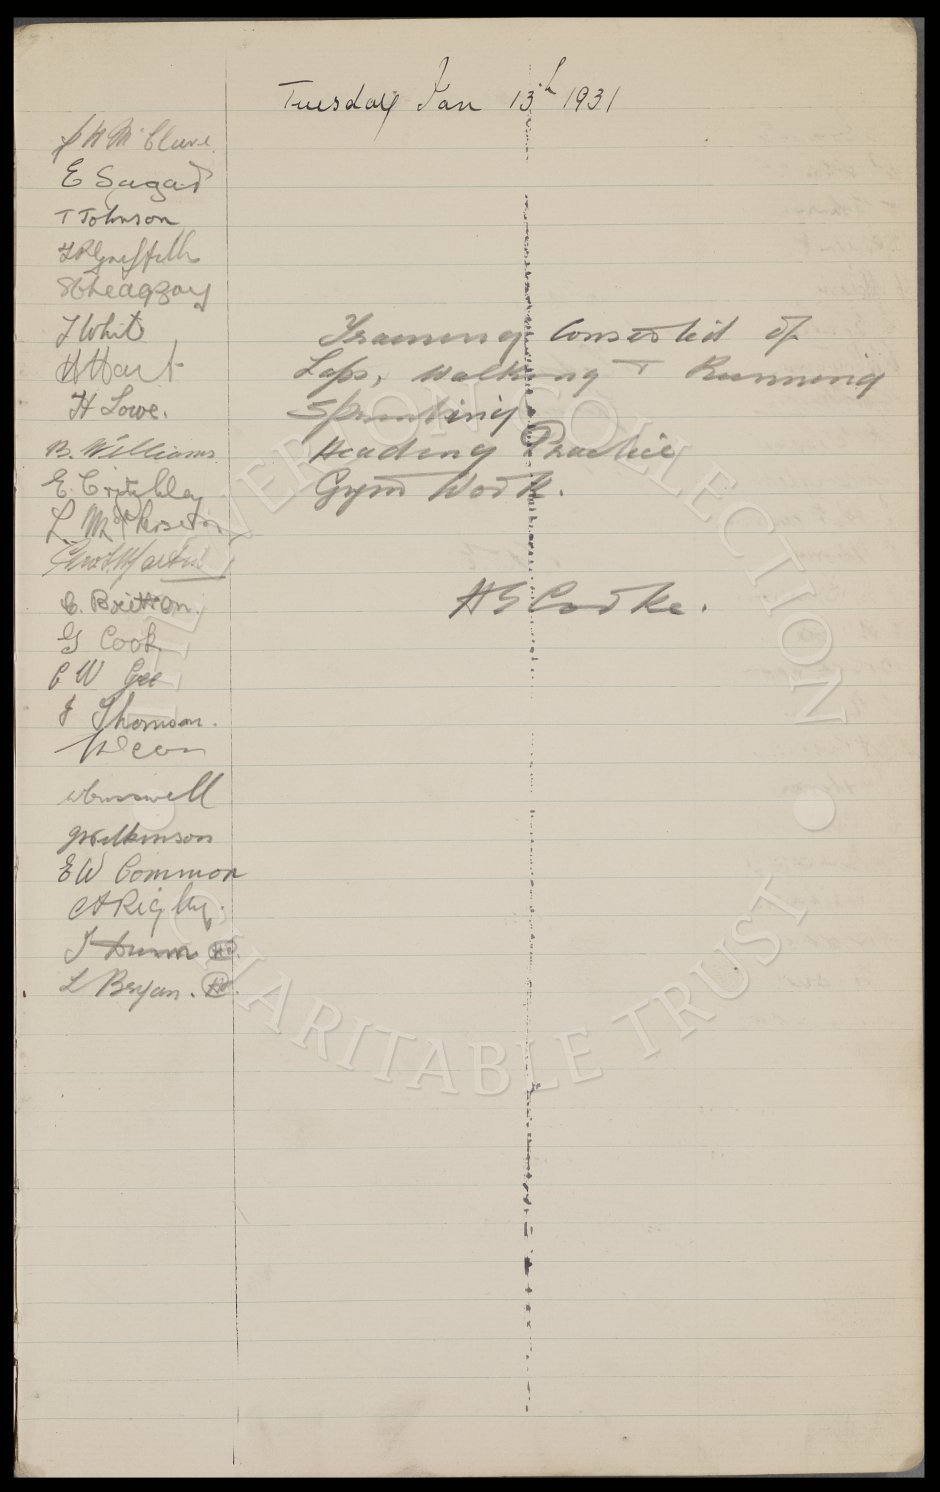 Tuesday Jan 13th 1931
J H McClure
E Sagar
T Johnson
T P Griffiths
T White
H Hart
H Lowe.
B. Williams
E. Critchley
L. McPherson
Geo. Martin
C. Britton.
G Cook
C W Gee
J Thomson.
W Dean
W Cresswell
J Wilkinson
E W Common
C A Rigby.
J Dunn HC.
L Bryan. HC.
Training Consested of
Laps, Walking + Running
Sprinting
Heading Practice
Gym Work.
H E Cooke.
THE EVERTON COLLECTION
CHARITABLE TRUST